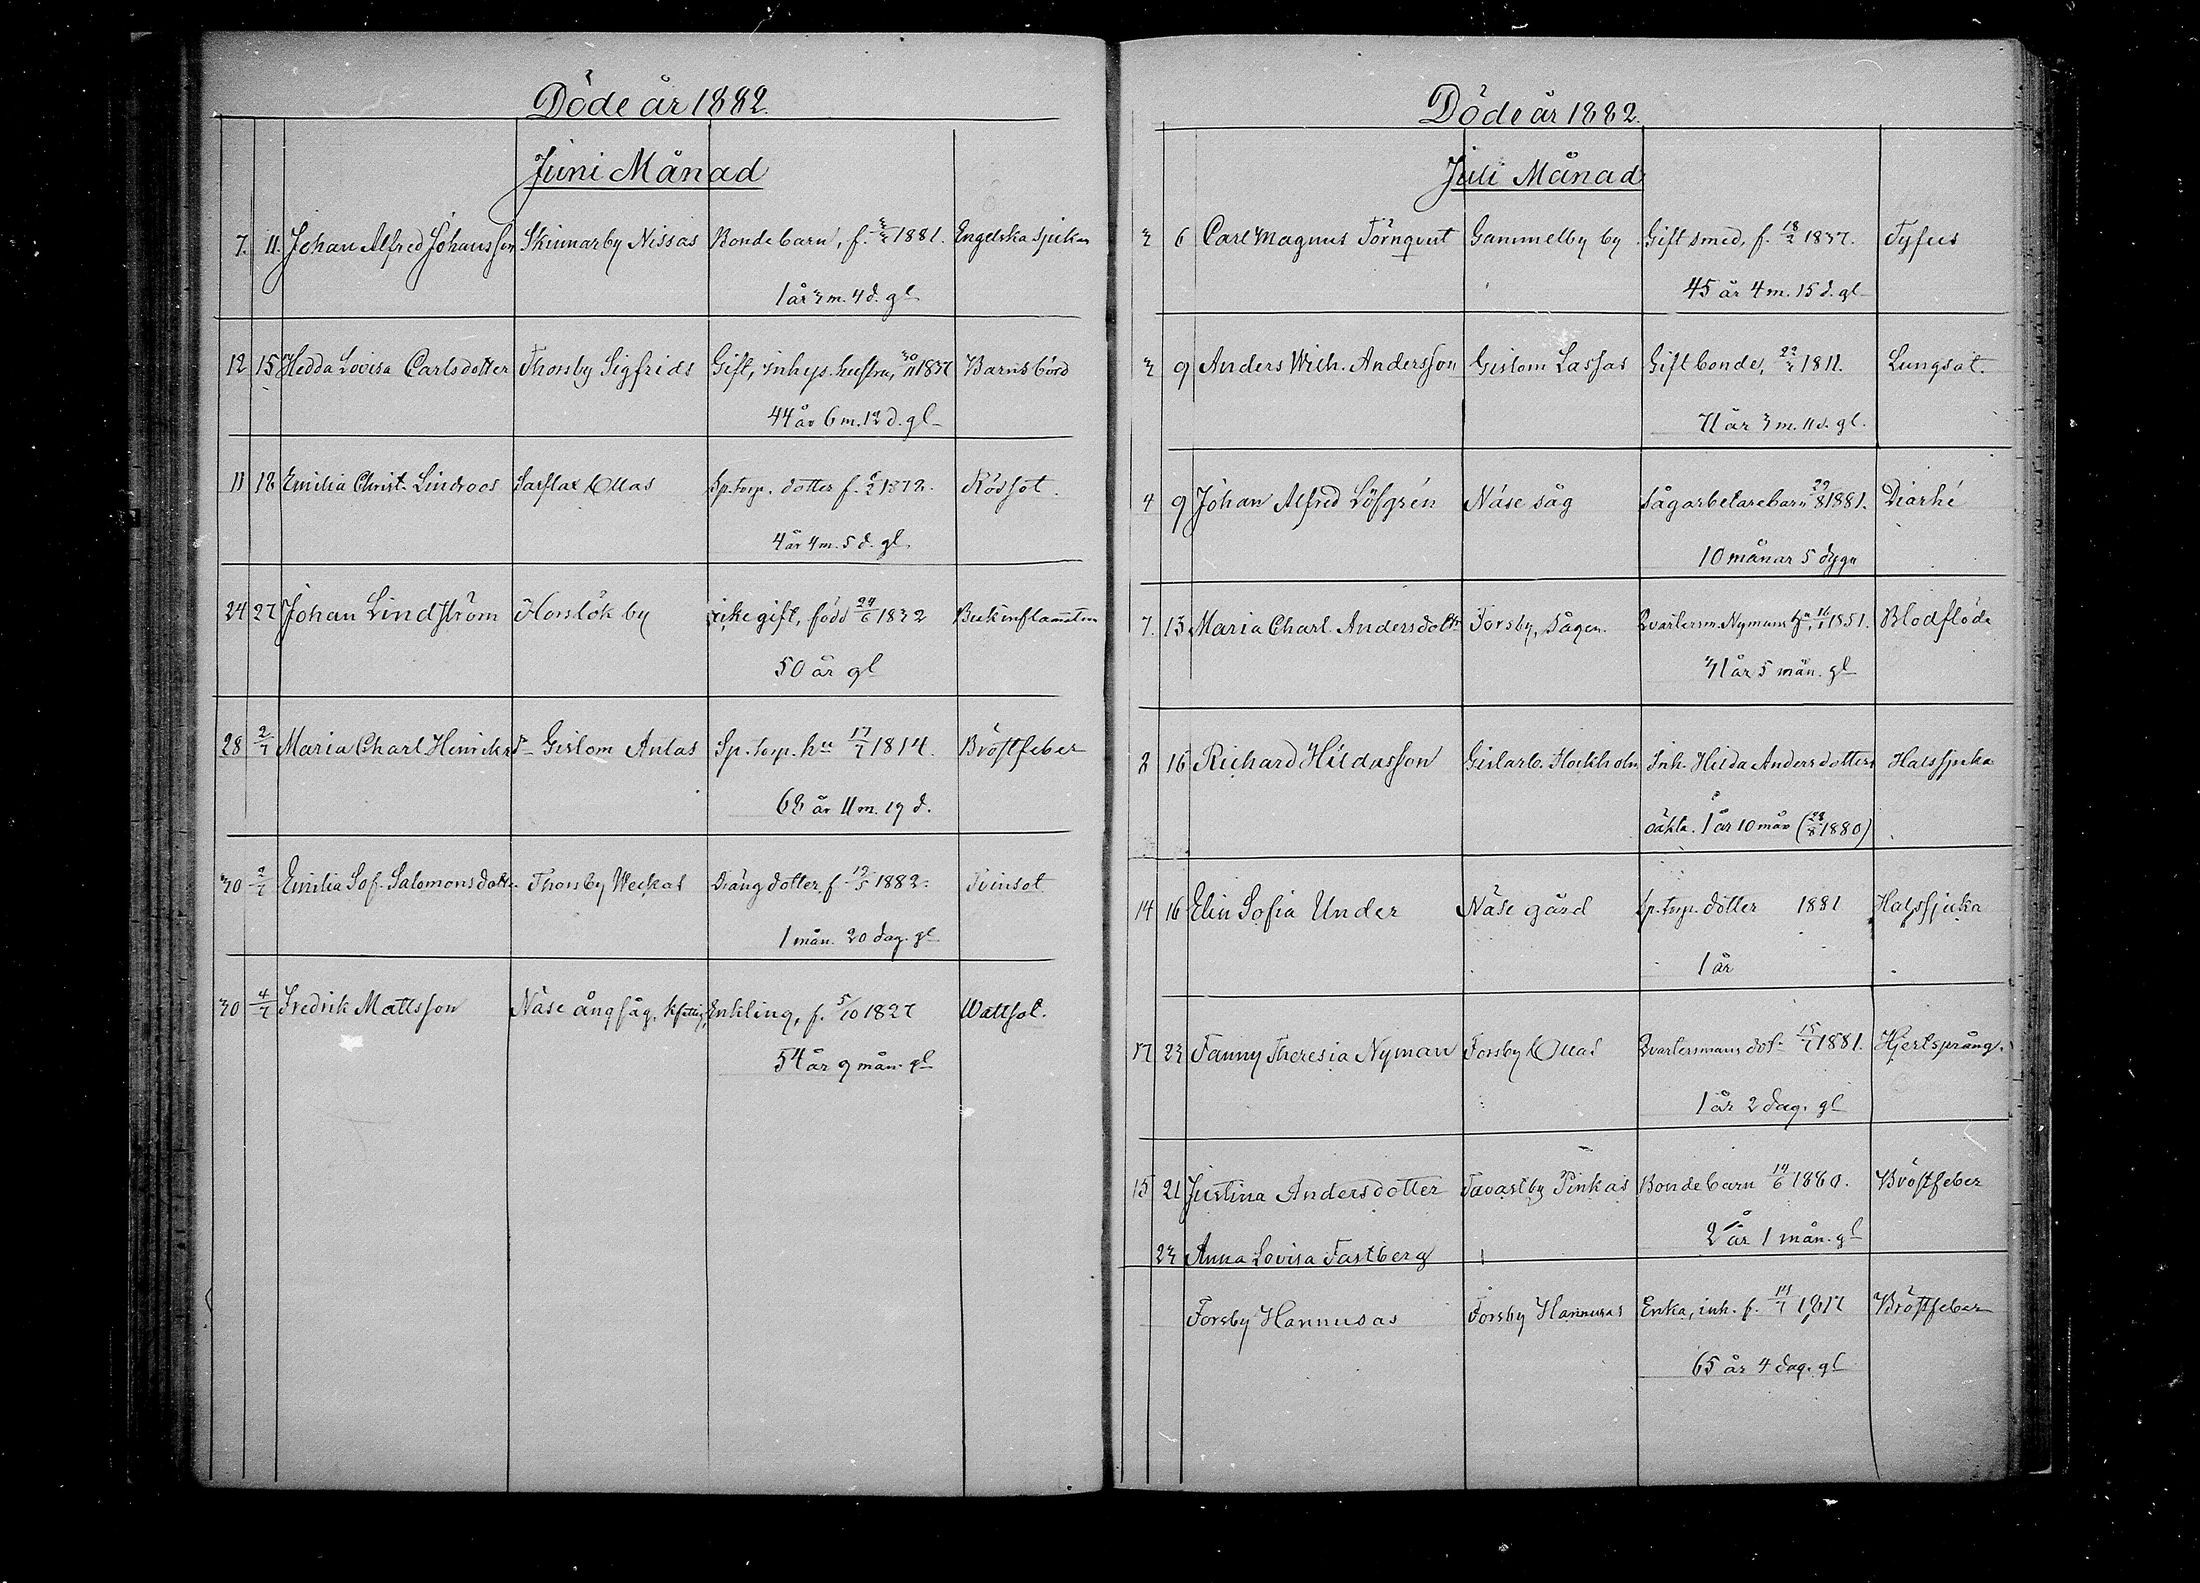 Döde år 1882.
Juni Månad
7. 11. Johan Alfred Johansson Skinnarby Nissas Bondebarn, f. 3/3 1881. Engelska sjukan
1 år 3 m. 4 d. gl
12 15 Hedda Lovisa Carlsdotter Thorsby Sigfrids Gift, inhys. hustru, 30/11 1837 Barnsbörd
44 år 6 m. 12 d. gl
11 18 Emilia Christ. Lindroos Sarflax Ollas Sp. torp. dotter f. 6/2 1878. Rödsot.
4 år 4 m. 5 d. gl.
24 27 Johan Lindström Horslök by icke gift, född 24/6 1832 Bukinflammation
50 år gl
28 2/7 Maria Charl Henriksd Gislom Antas Sp. torp. hu 17/7 1814. Bröstfeber
68 år 11 m. 19 d.
30 2/7 Emilia Sof. Salomonsdotter Thorsby Weckas Drängdotter f. 12/5 1882. Tvinsot
1 mån. 20 dag. gl
30 4/7 Fredrik Mattsson Näse ångsåg, Enkling, f. 5/10 1827 Wattsot.
54 år 9 mån. gl
Döde år 1882.
Juli Månad
3 6 Carl Magnus Törnqvist Gammelby by Gift smed, f. 18/2 1837. Tyfus
45 år 4 m. 15 d. gl
3 9 Anders Wilh. Andersson Gislom Lassas Gift bonde, 22/3 1811. Lungsot.
71 år 3 m. 11 d. gl.
4 9 Johan Alfred Löfgrén Näse såg Sågarbetarebarn 29/8 1881. Diarhé
10 månar 5 dygn
7. 13 Maria Charl. Andersdottr Forsby, Sågen. Qvarterm. Nymans hu, 16/1 1851. Blodflöde
31 år 5 mån. gl
8 16 Richard Hildasson Gislarb. Stockholm Inh. Hilda Andersdotters Halssjuka
oäkta. 1 år 10 mån (28/8 1880)
14 16 Elin Sofia Under Näse gård Sp. torp. dotter 1881 Halssjuka
1 år
17 23 Fanny Theresia Nyman Forsby Ollas Qvartersmans dot. 15/7 1881. Hjertsprång.
1 år 2 dag. gl
15 21 Justina Andersdotter Tavastby Pinkas Bondebarn 14/6 1880. Bröstfeber
2 år 1 mån. gl
23 Anna Lovisa Fastberg
Forsby Hannusas Forsby Hannusas Enka, inh. f. 14/7 1817 Bröstfeber
65 år 4 dag. gl